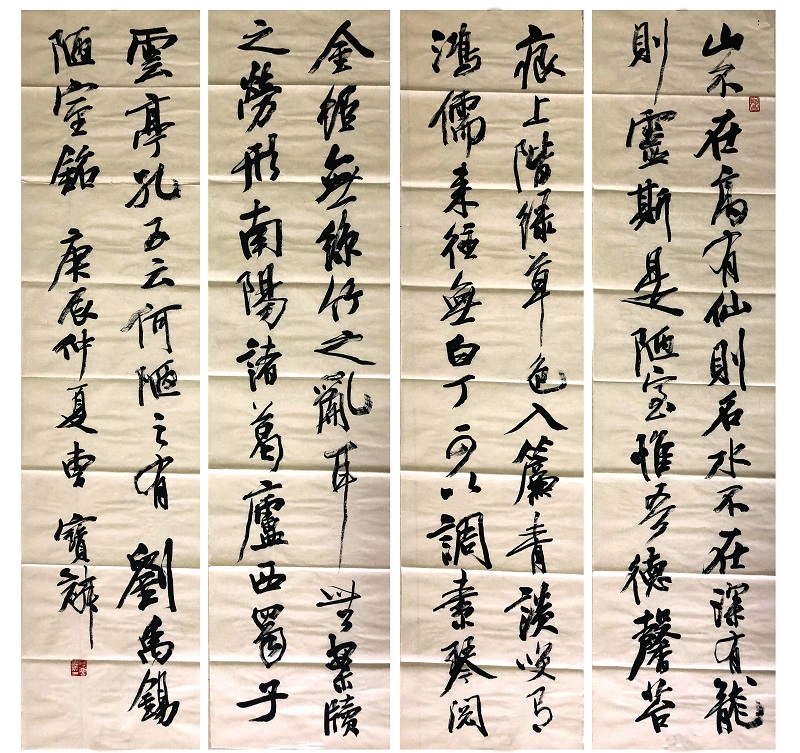 山不在高有仙則名水不在深有龍
則靈斯是陋室惟吾德馨苔
痕上階緑草色入簾青談笑有
鴻儒来往無白丁可以調素琴閱
金經無絲竹之亂耳無案牘
之勞形南陽諸葛廬西蜀子
雲亭孔子云何陋之有 劉禹錫
陋室銘 庚辰仲夏曹寶麟